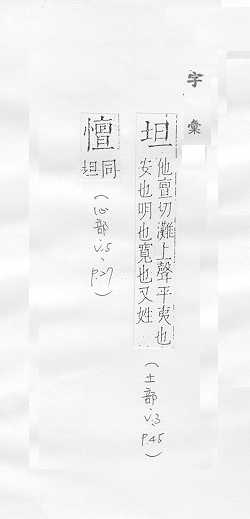 字彙
坦
他亶切灘上聲平夷也
安也明也寬也又姓
(土部.v.3 p.45)
憻
同坦
(心部.v.5、p.27)